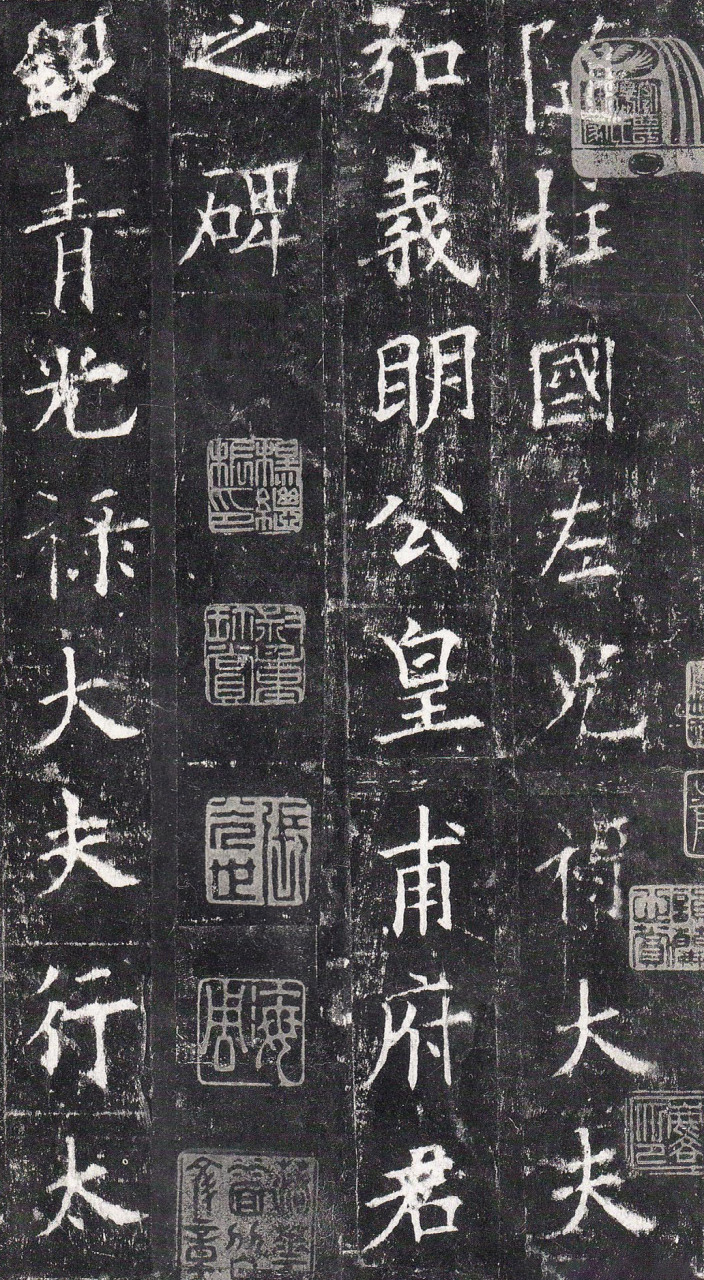 隨柱國左光祿大夫
弘義明公皇甫府君
之碑
銀青光祿大夫行太